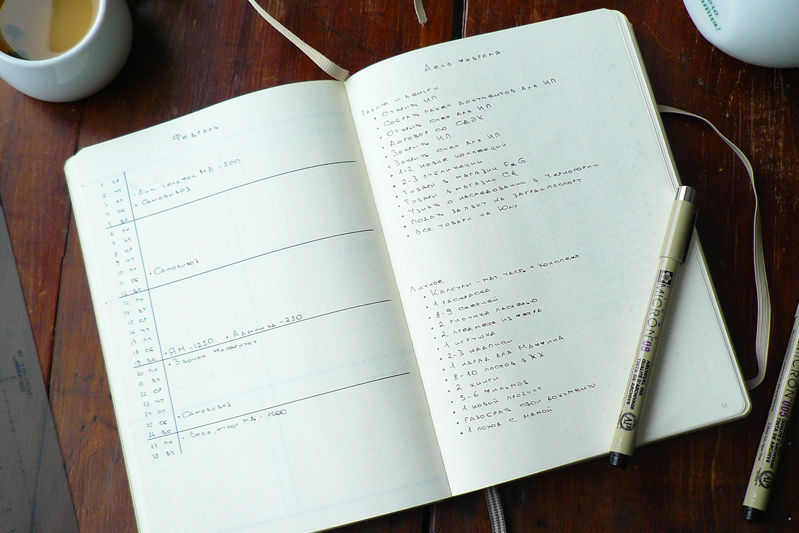 Февраль
1 СР
2 ЧТ · Для талонов МД - 500
3 ПТ · Самовывоз
4 СБ
5 ВС
6 ПН
7 ВТ
8 СР
9 ЧТ
10 ПТ
11 СБ · Самовывоз
12 ВС
13 ПН
14 ВТ
15 СР
16 ЧТ
17 ПТ
18 СБ · ЯМ - 1250 · Админка - 250
19 ВС · Звонок
20 ПН
21 ВТ
22 СР
23 ЧТ
24 ПТ
25 СБ · Самовывоз
26 ВС
27 ПН · Вода, МД - 1000
28 ВТ
Дела февраля
Работа и деньги
· Открыть ИП
· Собрать пакет документов для ИП
· Открыть счет для ИП
· Договор со СДЭК
· Закрыть ИП
· Закрыть счет для ИП
· 1-2 новые коллекции
· 2-3 публикации
· Товары в магазин F&G
· Товары в магазин CR
· Узнать о наследовании в Черногории
· Подать заявку на загранпаспорт
· Все товары на Юлу
Личное
· Капсулы - мат. часть + конспект
· 1 раскраска
· 8-9 статей
· 2 рисунка пастелью
· 2 предмета из фетра
· 1 игрушка
· 2-3 надписи
· 1 наряд для
· 8-10 постов в ЖЖ
· 2 книги
· 5-6 фильмов
· 1 новый продукт
· Разобрать свои документы
· 1 поход с мамой
MICRON 08
MICRON 005